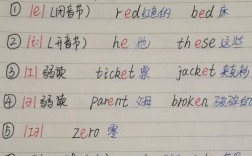 ① |e| (闭音节) red 红色的 bed 床
② |i:| (开音节) he 他 these 这些
③ |ɪ| 弱读 ticket 票 jacket 夹克衫
④ |ə| 弱读 parent 父母 broken 破碎的
⑤ |ɪə| zero 零